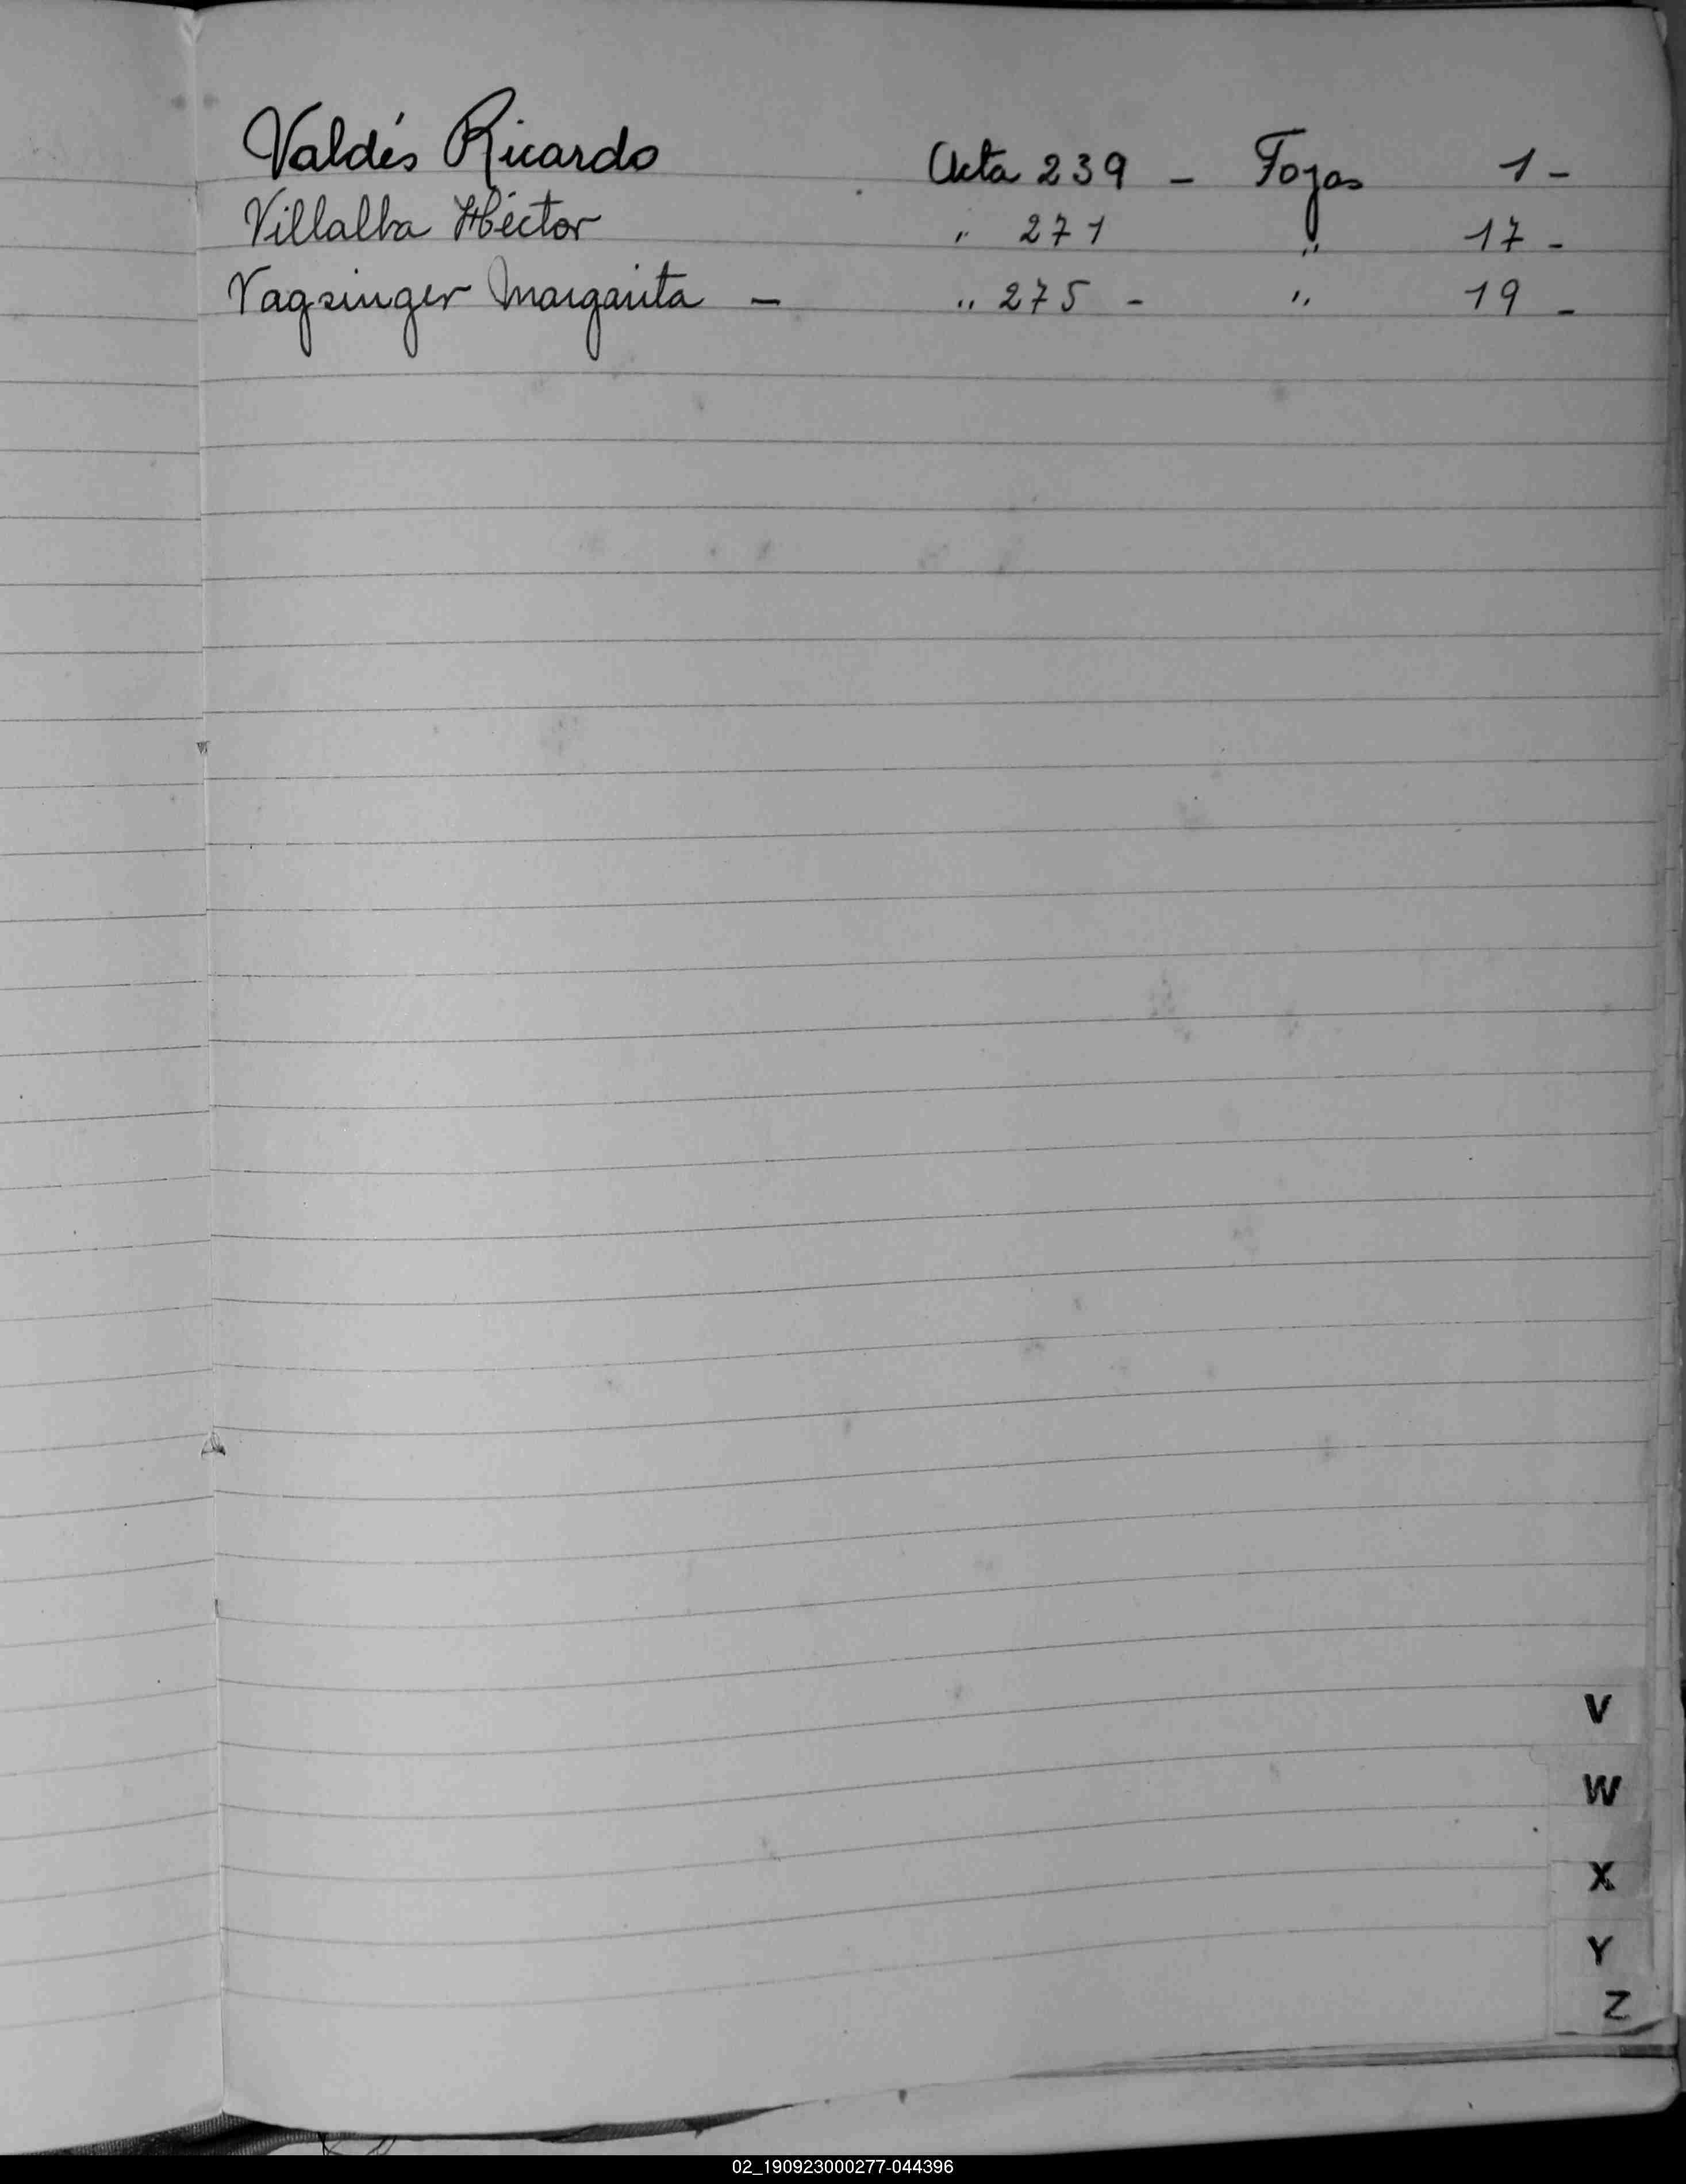 Valdés Ricardo Acta 239 - Fojas 1 -
Villalba Héctor " 271 " 17 -
Vagsinger Margarita - " 275 - " 19 -
V
W
X
Y
Z
02_190923000277-044396